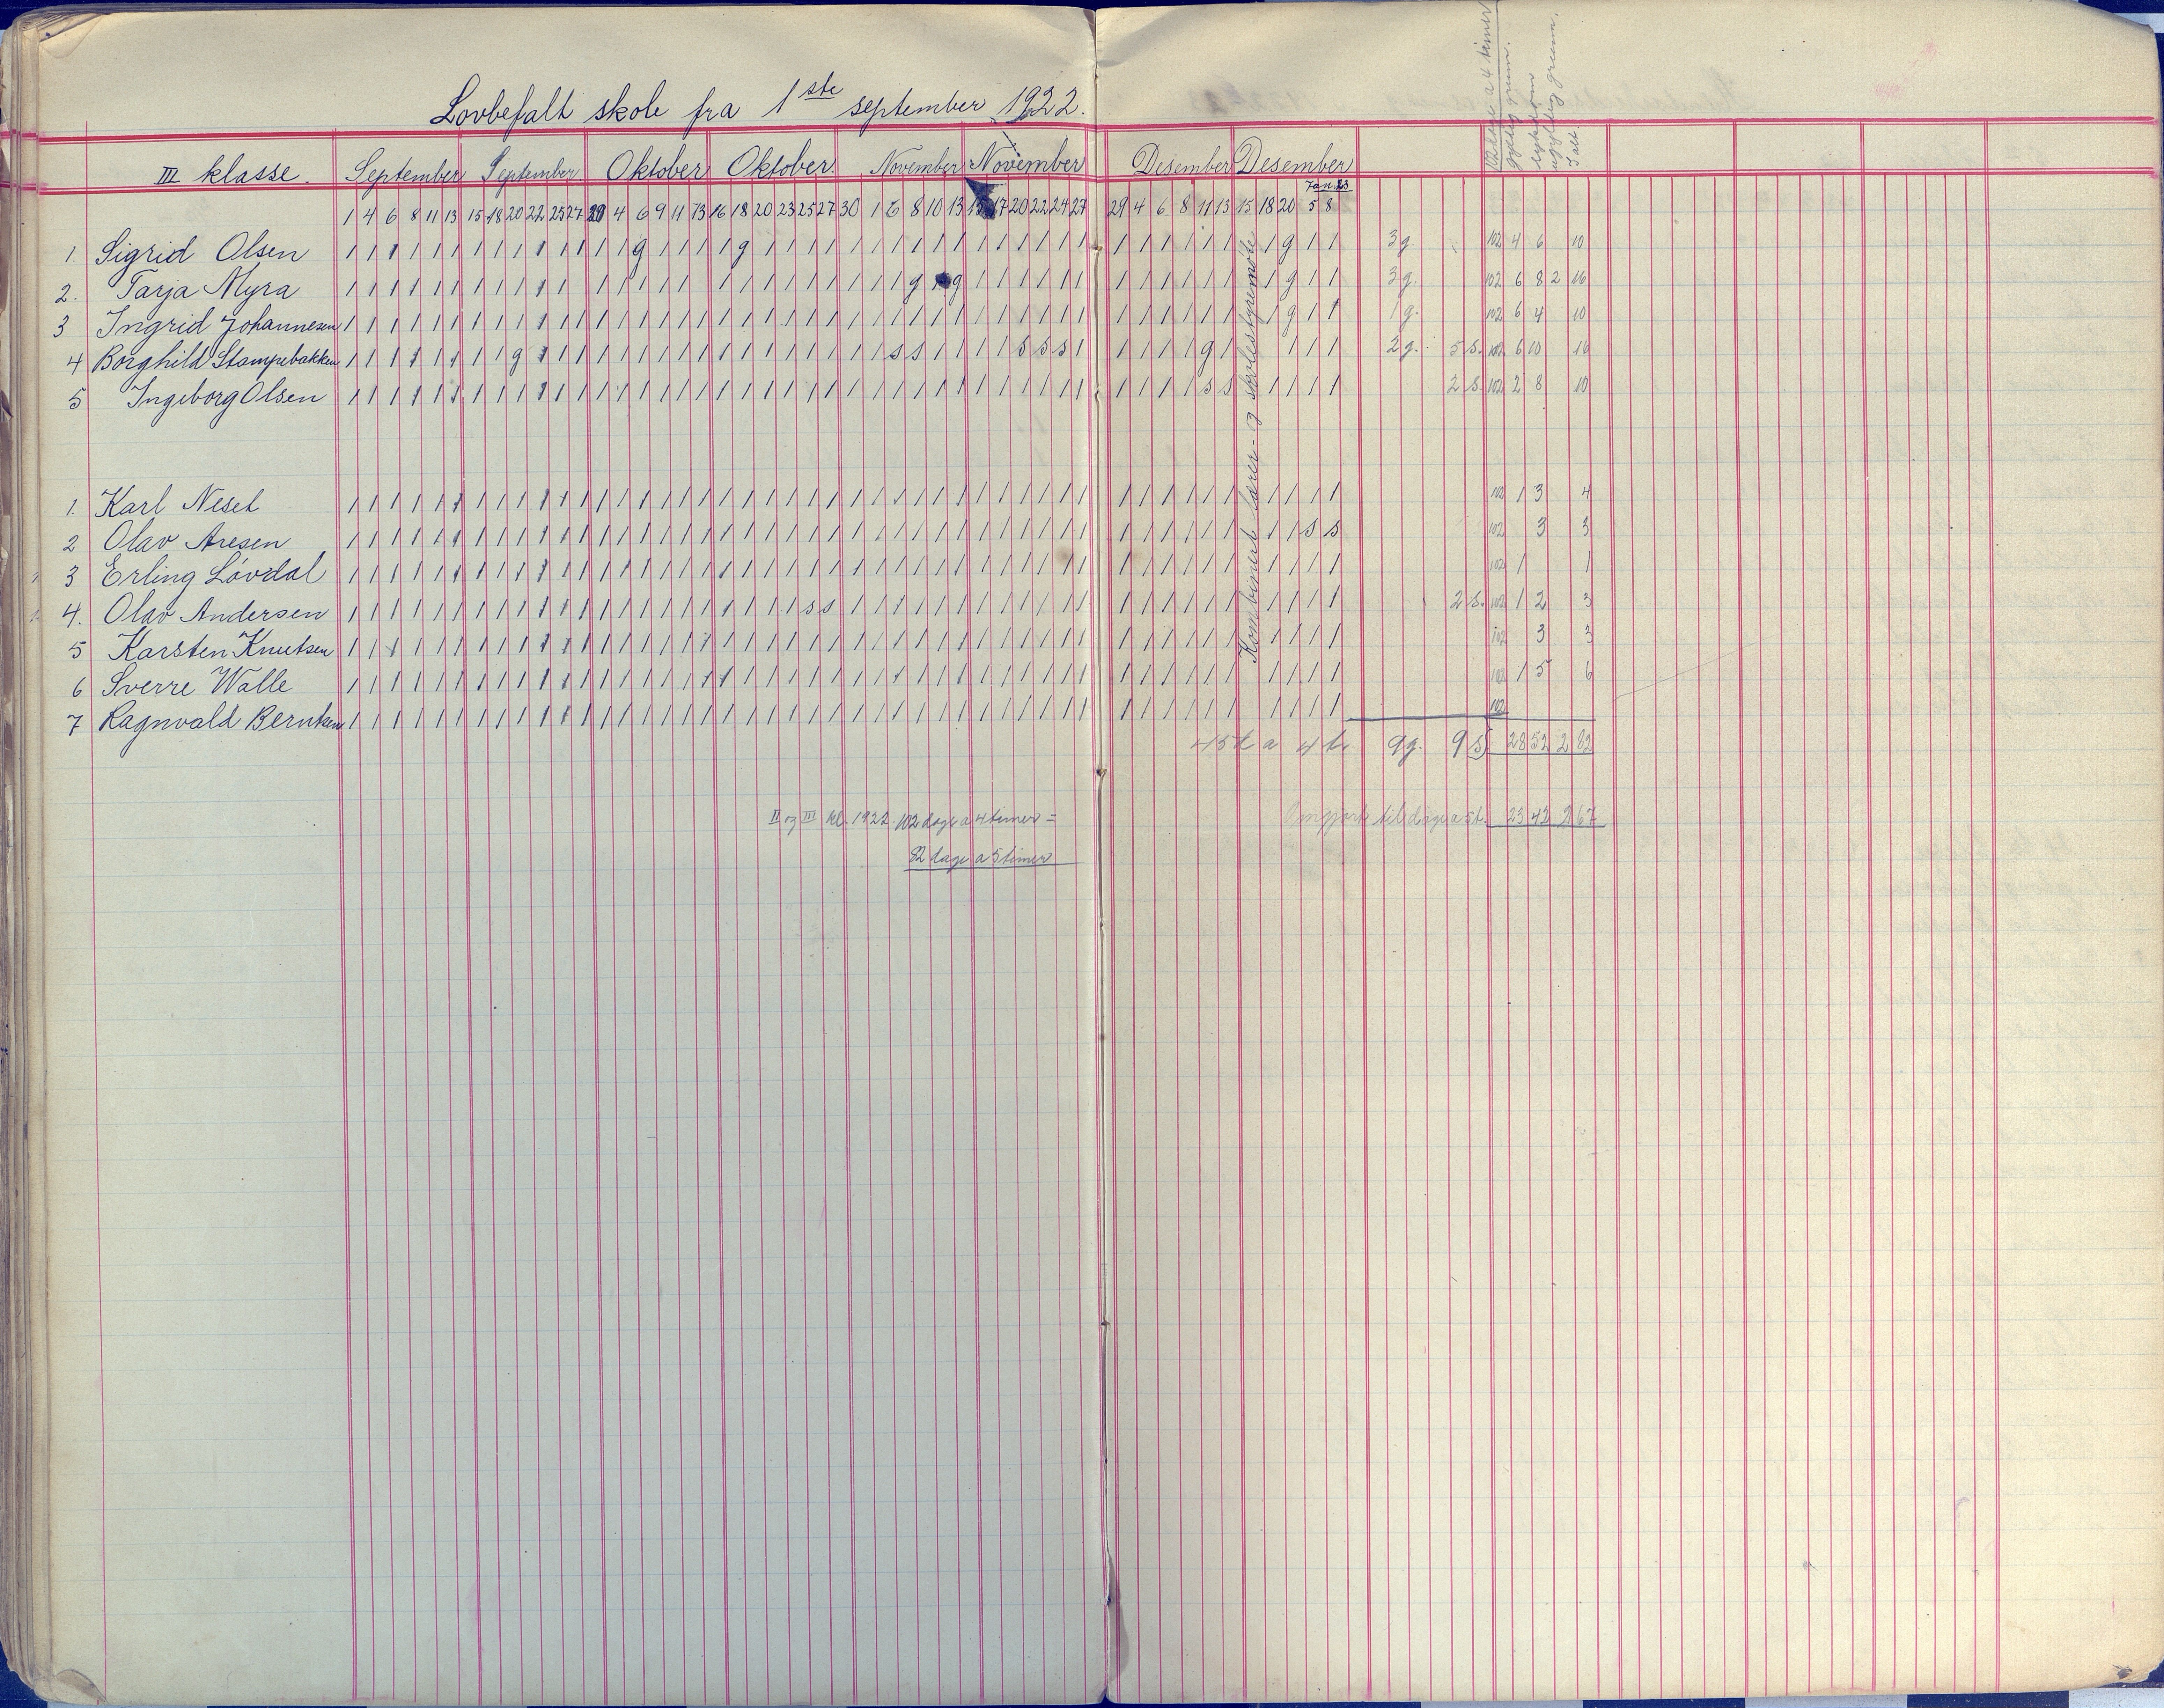 Lovbefalt skole fra 1ste september 1922.
III klasse. September September Oktober Oktober. November November Desember Desember
Jan. 23
1 4 6 8 11 13 15 18 20 22 25 27 29 4 6 9 11 13 16 18 20 23 25 27 30 1 6 8 10 13 15 17 20 22 24 27 29 4 6 8 11 13 15 18 20 5 8
1. Sigrid Olsen 3 g. 102 4 6 10
2. Tarja Myra 3 g. 102 6 8 2 16
3 Ingrid Johannesen 1 g. 102 6 4 10
4 Borghild Stampebakken 2 g. 5 s. 102 6 10 16
5 Ingeborg Olsen 2 s. 102 2 8 10
Kombinert lærer- og skolestyremøte
1. Karl Neset 102 1 3 4
2 Olav Aresen 102 3 3
3 Erling Løvdal 102 1 1
4. Olav Andersen 2 s. 102 1 2 3
5 Karsten Knutsen 102 3 3
6 Sverre Walle 102 1 5 6
7 Ragnvald Berntsen 102
45 d a 4 t. 9 g. 9 s 28 52 2 82
II og III kl. 1922. 102 dage a 4 timer =
82 dage a 5 timer
Omgjort til dage a 5 t. 23 42 2 67